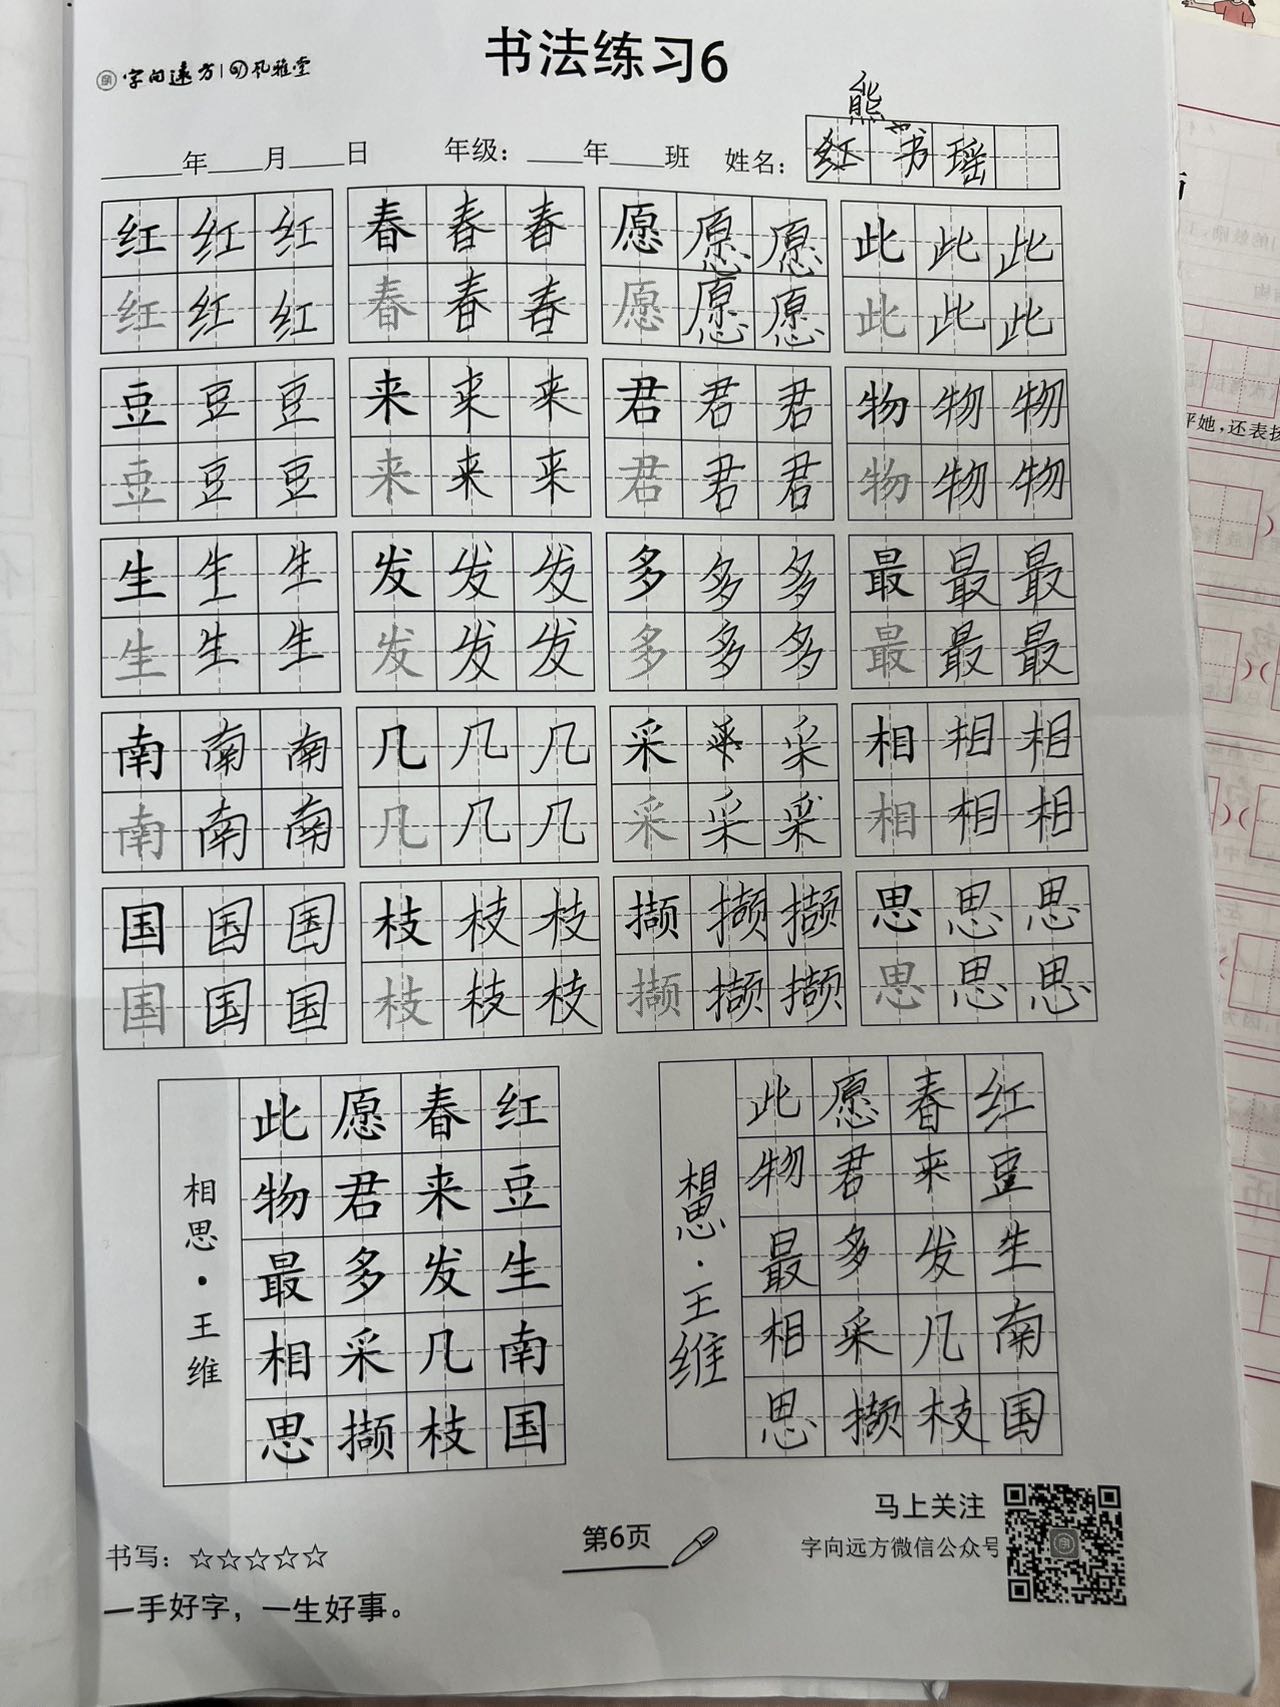 书法练习6
字向远方 孔雅堂
熊
____年____月____日 年级：____年____班 姓名： 红书瑶
红红红 春春春 愿愿愿 此此此
红红红 春春春 愿愿愿 此此此
豆豆豆 来来来 君君君 物物物
豆豆豆 来来来 君君君 物物物
生生生 发发发 多多多 最最最
生生生 发发发 多多多 最最最
南南南 几几几 采采采 相相相
南南南 几几几 采采采 相相相
国国国 枝枝枝 撷撷撷 思思思
国国国 枝枝枝 撷撷撷 思思思
红豆生南国
春来发几枝
愿君多采撷
此物最相思
相思·王维
红豆生南国
春来发几枝
愿君多采撷
此物最相思
相思·王维
马上关注
字向远方微信公众号
第6页
书写：☆☆☆☆☆
一手好字，一生好事。